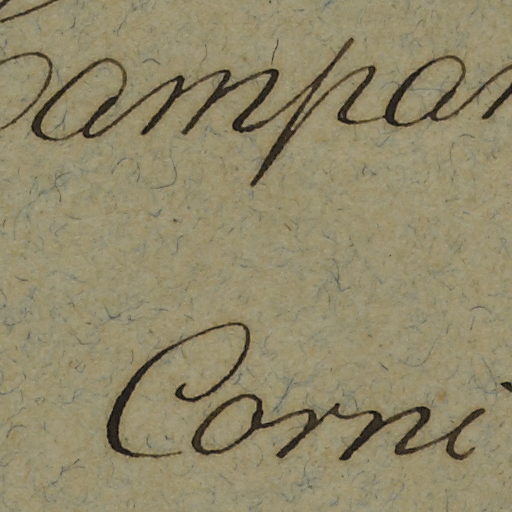 Campan
Corni